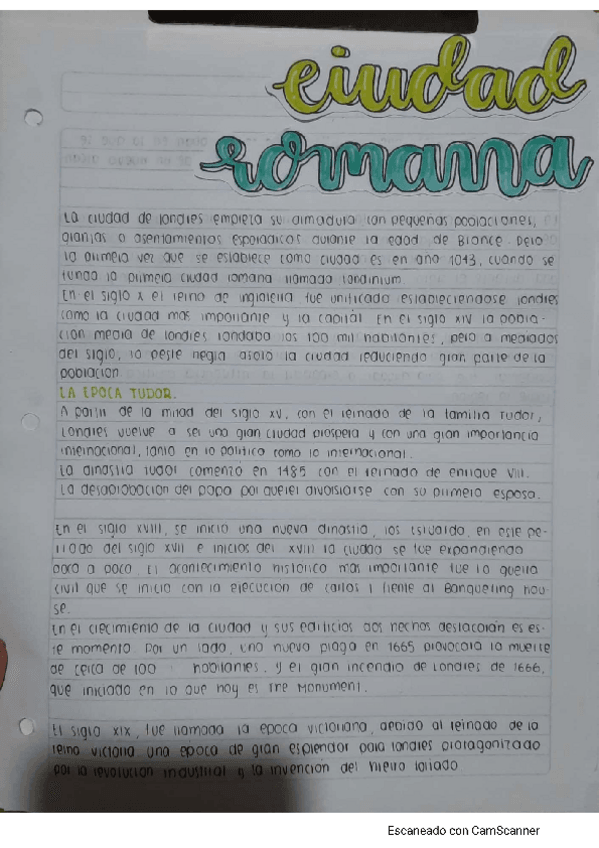 ciudad
romana
La ciudad de londres empieza su armadura con pequeñas poblaciones,
granjas o asentamientos esporadicos durante la edad de Bronce. Pero
la primera vez que se establece como ciudad es en año 1043, cuando se
funda la primera ciudad romana llamada londinium.
En el siglo X el reino de inglaterra fue unificado estableciendose londres
como la ciudad mas importante y la capital. En el siglo XIV la pobla-
cion media de londres rondaba los 100 mil habitantes, pero a mediados
del siglo, la peste negra asolo la ciudad reduciendo gran parte de la
poblacion.
LA EPOCA TUDOR.
A partir de la mitad del siglo XV, con el reinado de la familia Tudor,
Londres vuelve a ser una gran ciudad prospera y con una gran importancia
internacional, tanto en lo politico como lo internacional.
La dinastia Tudor comenzo en 1485 con el reinado de enrique VIII.
La desaprobacion del papa por querer divorsiarse con su primera esposa.
En el siglo XVIII, se inicio una nueva dinastia, los Estuardo, en este pe-
riodo del siglo XVII e inicios del XVIII la ciudad se fue expandiendo
poco a poco. El acontecimiento historico mas importante fue la guerra
civil que se inicio con la ejecucion de carlos I frente al Banqueting hou-
se.
En el crecimiento de la ciudad y sus edificios dos hechos destacaran es es-
te momento. Por un lado, una nueva plaga en 1665 provocara la muerte
de cerca de 100 habitantes. y el gran incendio de Londres de 1666,
que iniciado en lo que hoy es The Monument.
El siglo XIX, fue llamada la epoca victoriana, debido al reinado de la
reina victoria una epoca de gran esplendor para londres protagonizado
por la revolucion industrial y la invencion del
Escaneado con CamScanner